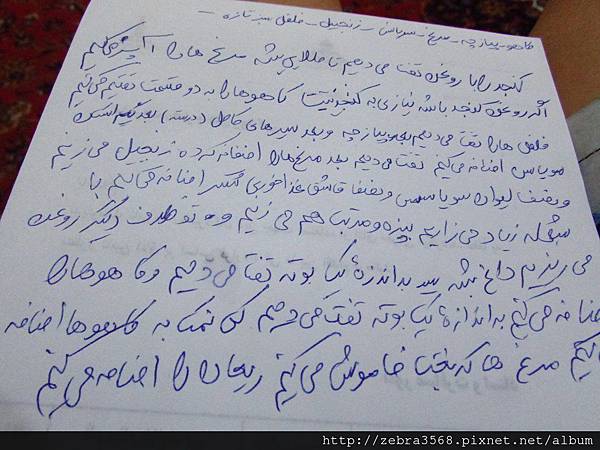 کاهو - پیازچه - مرغ - سویاس - زنجبیل - فلفل سبز تازه -
کنجد را با روغن تفت می دهیم تا طلایی بشه مرغ ها را
اگه روغن کنجد باشه نیازی به کنجد نیست کاهوها را به دو قسمت تقسیم می کنیم
فلفل ها را تفت می دیم بعد پیازچه و بعد سیرهای کامل (درسته)
سویاس اضافه می کنیم تفت می دیم بعد مرغ ها را اضافه کرده زنجبیل می زنیم
و نصف لیوان سویاسس و نصف قاشق غذاخوری شکر اضافه می کنیم با
شعله زیاد می زاریم بپزه و مرتب هم می زنیم و تو ظرف دیگر روغن
می ریزیم داغ بشه سیر به اندازهٔ یک بوته تفت می دیم و کاهوها را
اضافه می کنیم به اندازهٔ یک بوته تفت می دیم کمی نمک به کاهوها اضافه
می کنیم مرغ ها که پخت خاموش می کنیم ریحان را اضافه می کنیم
http://zebra3568.pixnet.net/album